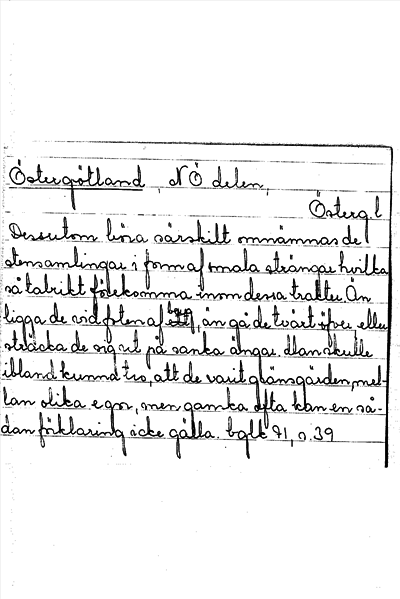 Östergötland, NÖ delen,
Österg l
Dessutom böra särskilt omnämnas de
stensamlingar i form af smala strängar hvilka
så talrikt förekomma inom dessa trakter. Än
ligga de vid foten af berg, än gå de tvärt öfver eller
sträcka de sig ut på sanka ängar. Man skulle
ibland kunna tro, att de varit gränsgärden mel-
lan olika egor, men ganska ofta kan en så-
dan förklaring icke gälla. bglk 71, s. 39